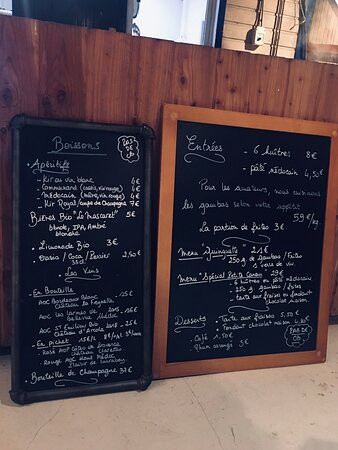 Boissons
PAS DE CB
- Apéritifs
- Kir au vin blanc 4€
- Communard (cassis, vin rouge) 4€
- Médocain (mûre, vin rouge) 4€
- Kir Royal/coupe de Champagne 7€
Bières Bio "La Mascaret" 5€
blonde, IPA, Ambrée
blanche
- Limonade Bio 3€
- Oasis / Coca / Perrier 2,50€
33cl
- Les Vins -
- En Bouteille
AOC Bordeaux Blanc 15€
Château
AOC Les larmes de
AOC St Emilion Bio
Château
- En pichet
Rosé AOC Côtes de Provence
Château
Rouge AOC Haut Médoc
Bouteille de Champagne 37€
Entrées
- 6 huîtres 8€
- pâté médocain 4,50€
Pour les amateurs, nous cuisinons
les gambas selon votre appétit
59€/kg
La portion de frites 3€
Menu "Guinguette" 21€
250g de Gambas / Frites
1 verre de vin
Menu "Spécial Petit Canon" 29€
- 6 huîtres ou pâté médocain
- 250g de gambas / frites
- tarte aux fraises ou fondant
chocolat maison
Desserts
- Tarte aux fraises 5,50€
- Fondant chocolat maison 4,80€
- Café 1,50€
- Rhum arrangé 3€
PAS DE
CB